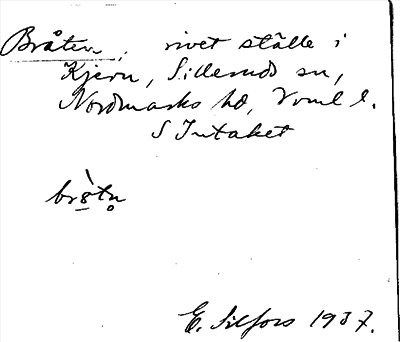 Bråten, rivet ställe i
Kjern, Silleruds sn,
Nordmarks hd, Vrml l.
S Intaket
bròtn̥
E. Silfors 1937.